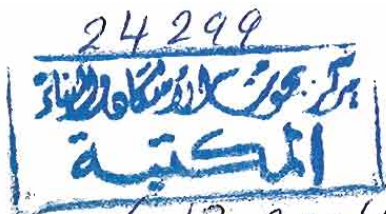 24299
مركز بحوث الإسكان والبناء
المكتبة